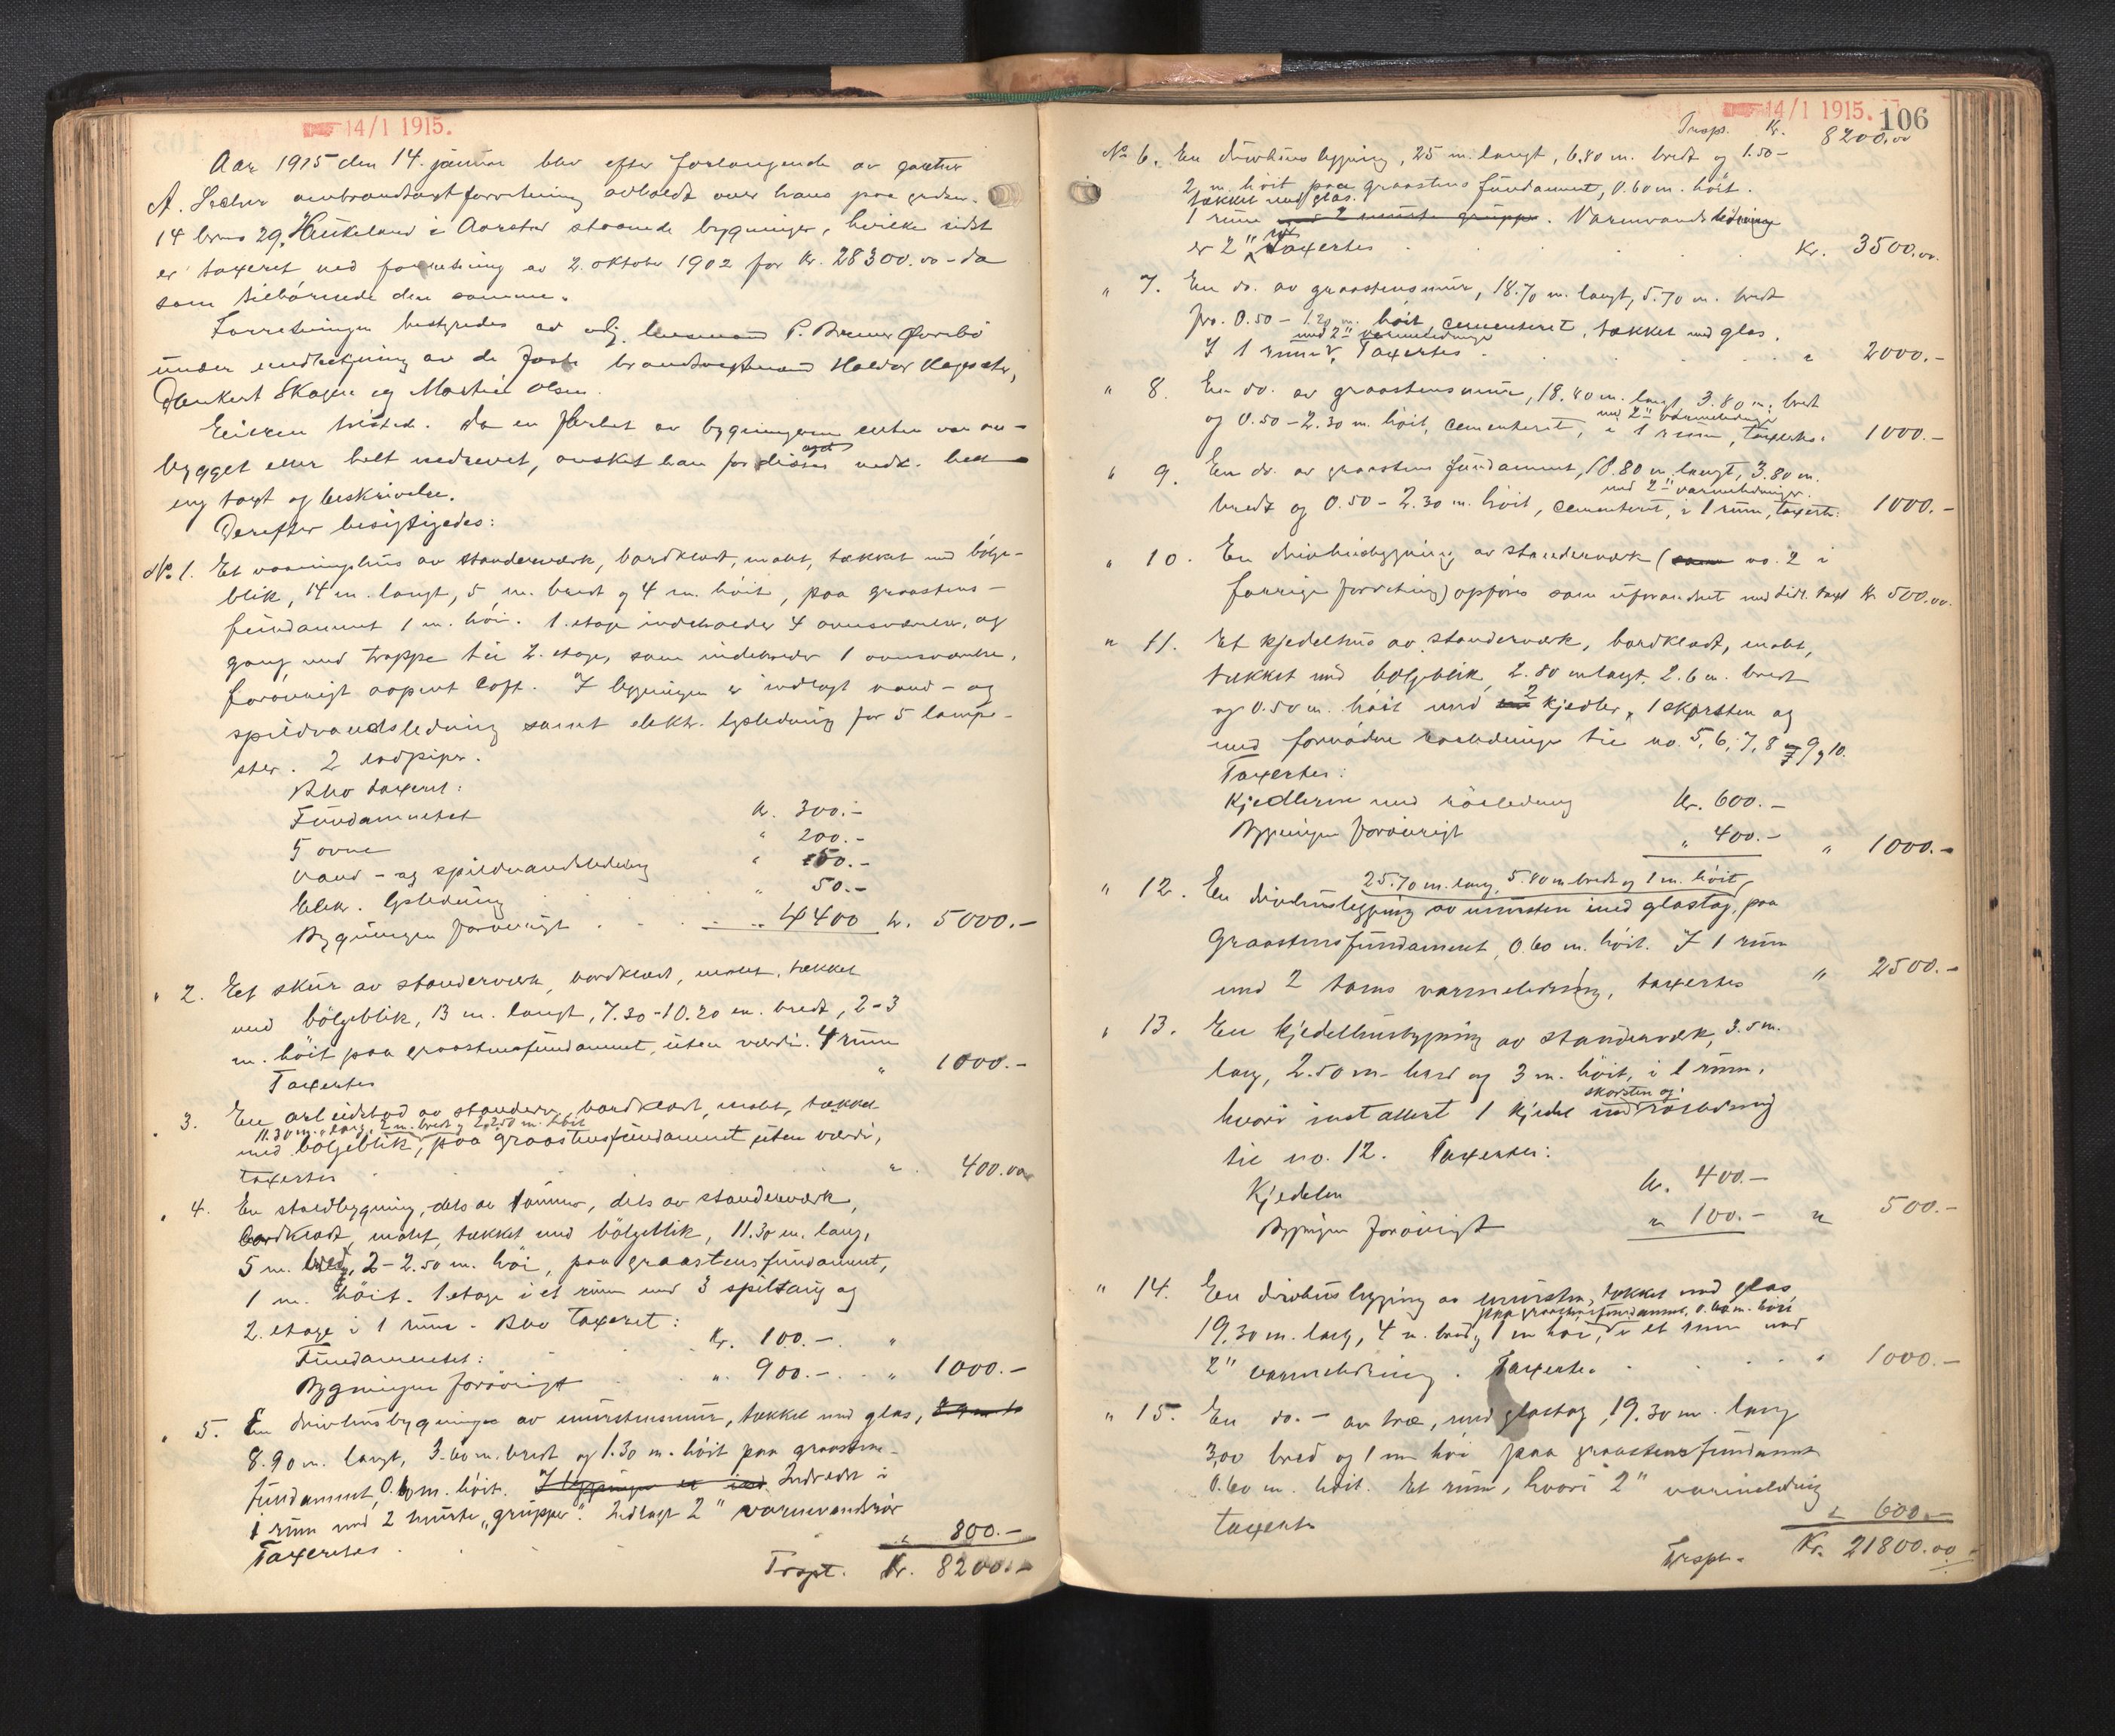 14/1 1915.
Aar 1915 den 14. januar blev efter forlangende av gartner
A. ombrandtaxtforretning avholdt over hans paa gaarden
14 brno 29, Haukeland i Aarstad staaende bygninger, hvilke sidst
er taxeret ved forretning av 2. oktober 1902 for kr. 28300.00 - da
som tilhørende den samme.
Forretningen bestyredes av lensmand P. Bremer Øvrebö
under medvirkning av de faste brandtaxtmænd Haldor
Dankert Skagen og Martin Olsen.
Eieren tilstede. Da en flerhet av bygningerne enten var om-
bygget eller helt nedrevet, ønsket han for disses vedk. helt
ny taxt og beskrivelse.
Derefter besigtigedes:
No. 1. Et vaaningshus av standerværk, bordklædt, malt, tækket med bölge-
blik, 14 m. langt, 5 m. bredt og 4 m. höit, paa graastens-
fundament 1 m. höi. 1. etage indeholder 4 ovnsværelser, og
gang med trappe til 2. etage, som indeholder 1 ovnsværelse,
forövrigt aapent loft. I bygningen er indlagt vand- og
spildvandsledning samt elektr. lysledning for 5 lampe-
ster. 2 rodpiper.
Blev taxeret:
Fundamentet kr. 300.-
5 ovne " 200.-
Vand- og spildvandsledning " 50.-
Elek. lysledning " 50.-
Bygningen forövrigt " 4400 kr. 5000.-
" 2. Et skur av standerværk, bordklædt, malt, tækket
med bölgeblik, 13 m. langt, 7.30-10.20 m. bredt, 2-3
m. höit paa graastensfundament, uten værdi. 4 rum
Taxertes " 1000.-
" 3. En arbeidsbod av standerv. bordklædt, malt, tækket
11.30 m. lang, 2 m. bred og 2,250 m. höit
med bölgeblik, paa graastensfundament uten værdi,
taxertes " 400.00
" 4. En staldbygning, dels av tömmer, dels av standerværk,
bordklædt, malt, tækket med bölgeblik, 11.30 m. lang,
5 m. bred, 2-2.50 m. höi, paa graastensfundament,
1 m. höit. 1. etage i et rum med 3 spiltaug og
2. etage i 1 rum. Blev taxeret:
Fundamentet: kr. 100.- "
Bygningen forövrigt " 900.- " 1000.-
" 5. En drivhusbygning av murstensmur, tækket med glas,
8.90 m. langt, 3.60 m. bredt og 1.30 m. höit paa graastens-
fundament, 0.60 m. höit. I bygningen er ind Indredet i
1 rum med 2 murte „grupper". Indlagt 2" varmevandsrör
Taxertes " 800.-
Trspt. Kr. 8200.-
14/1 1915. 106
Trsp. Kr. 8200.00
No. 6. En drivhusbygning, 25 m. langt, 6.80 m. bredt og 1.50-
2 m. höit paa graastens fundament, 0.60 m. höit.
tækket med glas.
1 rum med 2 murte grupper. Varmvandsledninger
er 2" rör Taxertes Kr. 3500.00.
" 7. En do. av graastensmur, 18.70 m. langt, 5.70 m. bredt
fra 0.50 - 1.20 m. höit, cementeret, tækket med glas.
med 2" varmeledninger
I 1 rum. Taxertes " 2000.-
" 8. En do. av graastensmur, 18.80 m. langt, 3.80 m. bredt
med 2" varmeledninger
og 0.50-2.30 m. höit, cementeret, i 1 rum, taxertes 1000.-
" 9. En do. av graastens fundament, 18.80 m. langt, 3.80 m.
med 2" varmeledninger.
bredt og 0.50-2.30 m. höit, cementeret, i 1 rum, taxert: 1000.-
" 10. En drivhusbygning av standerværk (som no. 2 i
forrige forretning) opföres som uforandret med sidste taxt Kr 500.00.
" 11. Et kjedelhus av standerværk, bordklædt, malt,
tækket med bölgeblik, 2.80 m langt, 2.6 m. bredt
og 0.50 m. höit med 2 kjedler, 1 skorsten og
med fornödne rörledninger til no. 5, 6, 7, 8 9 og 10.
Taxertes:
Kjedlerne med rörledning kr. 600.-
Bygningen forövrigt " 400.- " 1000.-
25.70 m. lang, 5.80 m bredt og 1 m. höit
" 12. En drivhusbygning av mursten med glastag, paa
graastensfundament, 0.60 m. höit. I 1 rum
med 2 toms varmeledning, taxertes " 2500.-
" 13. En kjedelhusbygning av standerværk, 3.5 m.
lang, 2.50 m. bred og 3 m. höit, i 1 rum,
skorsten og
hvori installert 1 kjedel med rörledning
til no. 12. Taxertes:
Kjedelen kr. 400.-
Bygningen forövrigt " 100.- " 500.-
" 14. En drivhusbygning av mursten, tækket med glas
paa graastensfundament, 0.60 m. höit
19.30 m. lang, 4 m. bred og 1 m höi, i et rum med
2" varmeledning. Taxertes " 1000.-
" 15. En do. - av træ, med glastag, 19.30 m. lang
3,00 bred og 1 m höi paa graastensfundament
0.60 m. höit. Et rum, hvori 2" varmeledning
taxertes " 600.-
Trspt. Kr. 21800.00